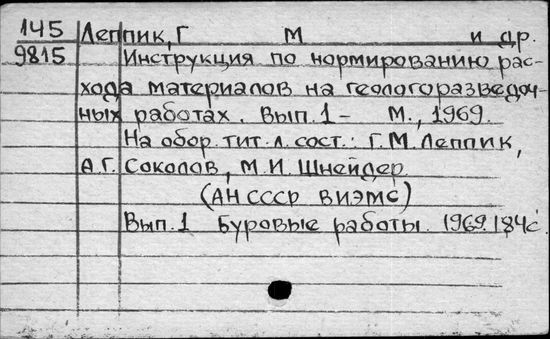 145 Леппик, Г М и др.
9815 Инструкция по нормированию рас-
хода материалов на геологоразведоч-
ных работах. Вып. 1 - М., 1969.
На обор. тит. л. сост.: Г.М. Леппик,
А.Г. Соколов, М.И. Шнейдер
(АН СССР ВИЭМС)
Вып. 1 Буровые работы. 1969. 184с.